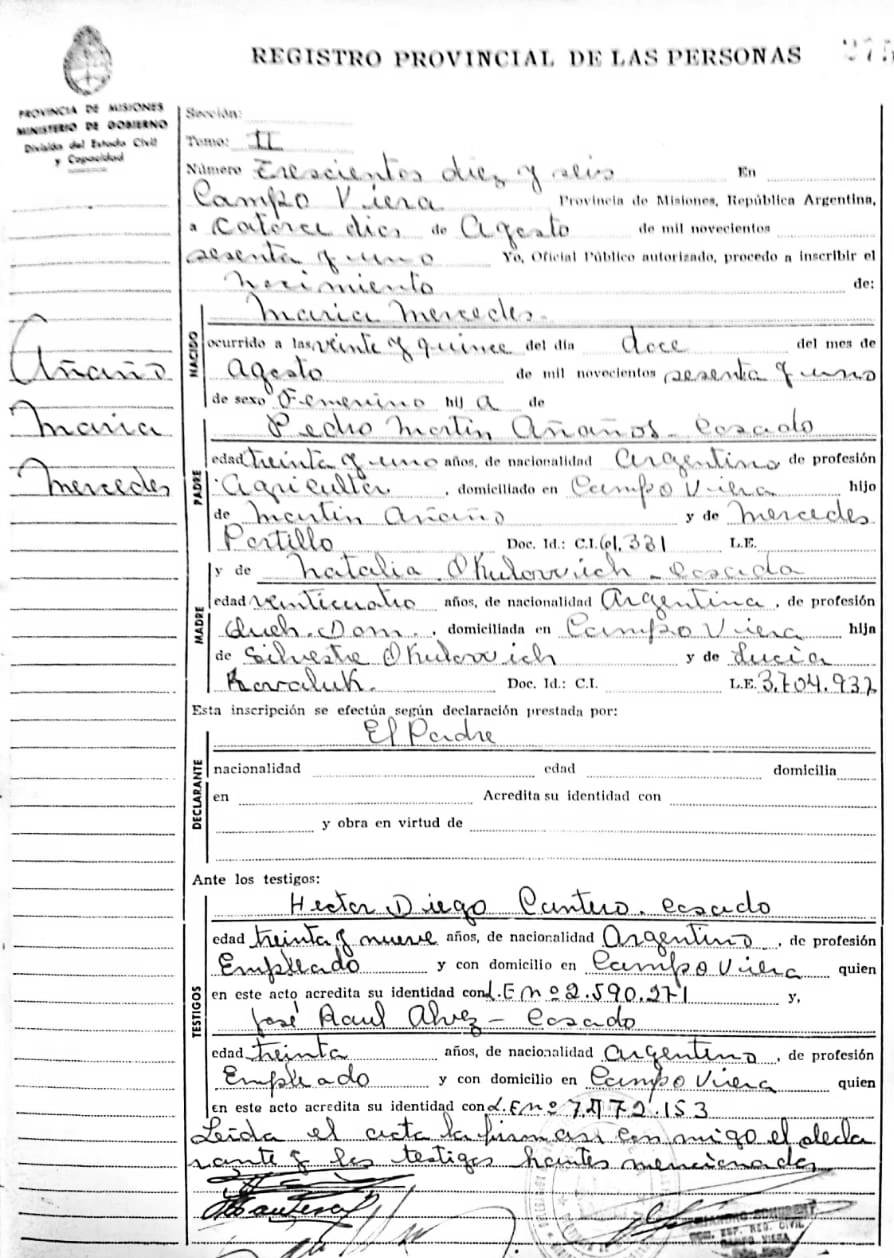 REGISTRO PROVINCIAL DE LAS PERSONAS
PROVINCIA DE MISIONES
MINISTERIO DE GOBIERNO
División del Estado Civil
y Capacidad
Añaño
Maria
Mercedes
Sección:
Tomo: II
Número Trescientos diez y seis En
Campo Viera Provincia de Misiones, República Argentina,
a Catorce dias de Agosto de mil novecientos
sesenta y uno Yo, Oficial Público autorizado, procedo a inscribir el
Nacimiento de:
Maria Mercedes.
NACIDO
ocurrido a las veinte y quince del día doce del mes de
Agosto de mil novecientos sesenta y uno
de sexo Femenino hij a de
PADRE
Pedro Martin Añaños - Casado
edad treinta y uno años, de nacionalidad Argentino de profesión
Agricultor, domiciliado en Campo Viera hijo
de Martin Añaño y de Mercedes
Portillo Doc. Id.: C.I. 61.331 L.E.
MADRE
y de Natalia Okulovvich - Casada
edad veinticuatro años, de nacionalidad Argentina, de profesión
Queh. Dom., domiciliada en Campo Viera hija
de Silvestre Okulovvich y de Lucia
Kovaluk. Doc. Id.: C.I. L.E. 3.704.932
Esta inscripción se efectúa según declaración prestada por:
El Padre
DECLARANTE
nacionalidad edad domicilia
en Acredita su identidad con
y obra en virtud de
Ante los testigos:
TESTIGOS
Hector Diego Cantero. Casado
edad treinta y nueve años, de nacionalidad Argentino, de profesión
Empleado y con domicilio en Campo Viera quien
en este acto acredita su identidad con L.E nº 2.590.271 y,
José Raul Alvez - Casado
edad treinta años, de nacionalidad Argentino, de profesión
Empleado y con domicilio en Campo Viera quien
en este acto acredita su identidad con L.E nº
Leida el acta la firman con migo el decla
rante y los testigos hantes mencionados